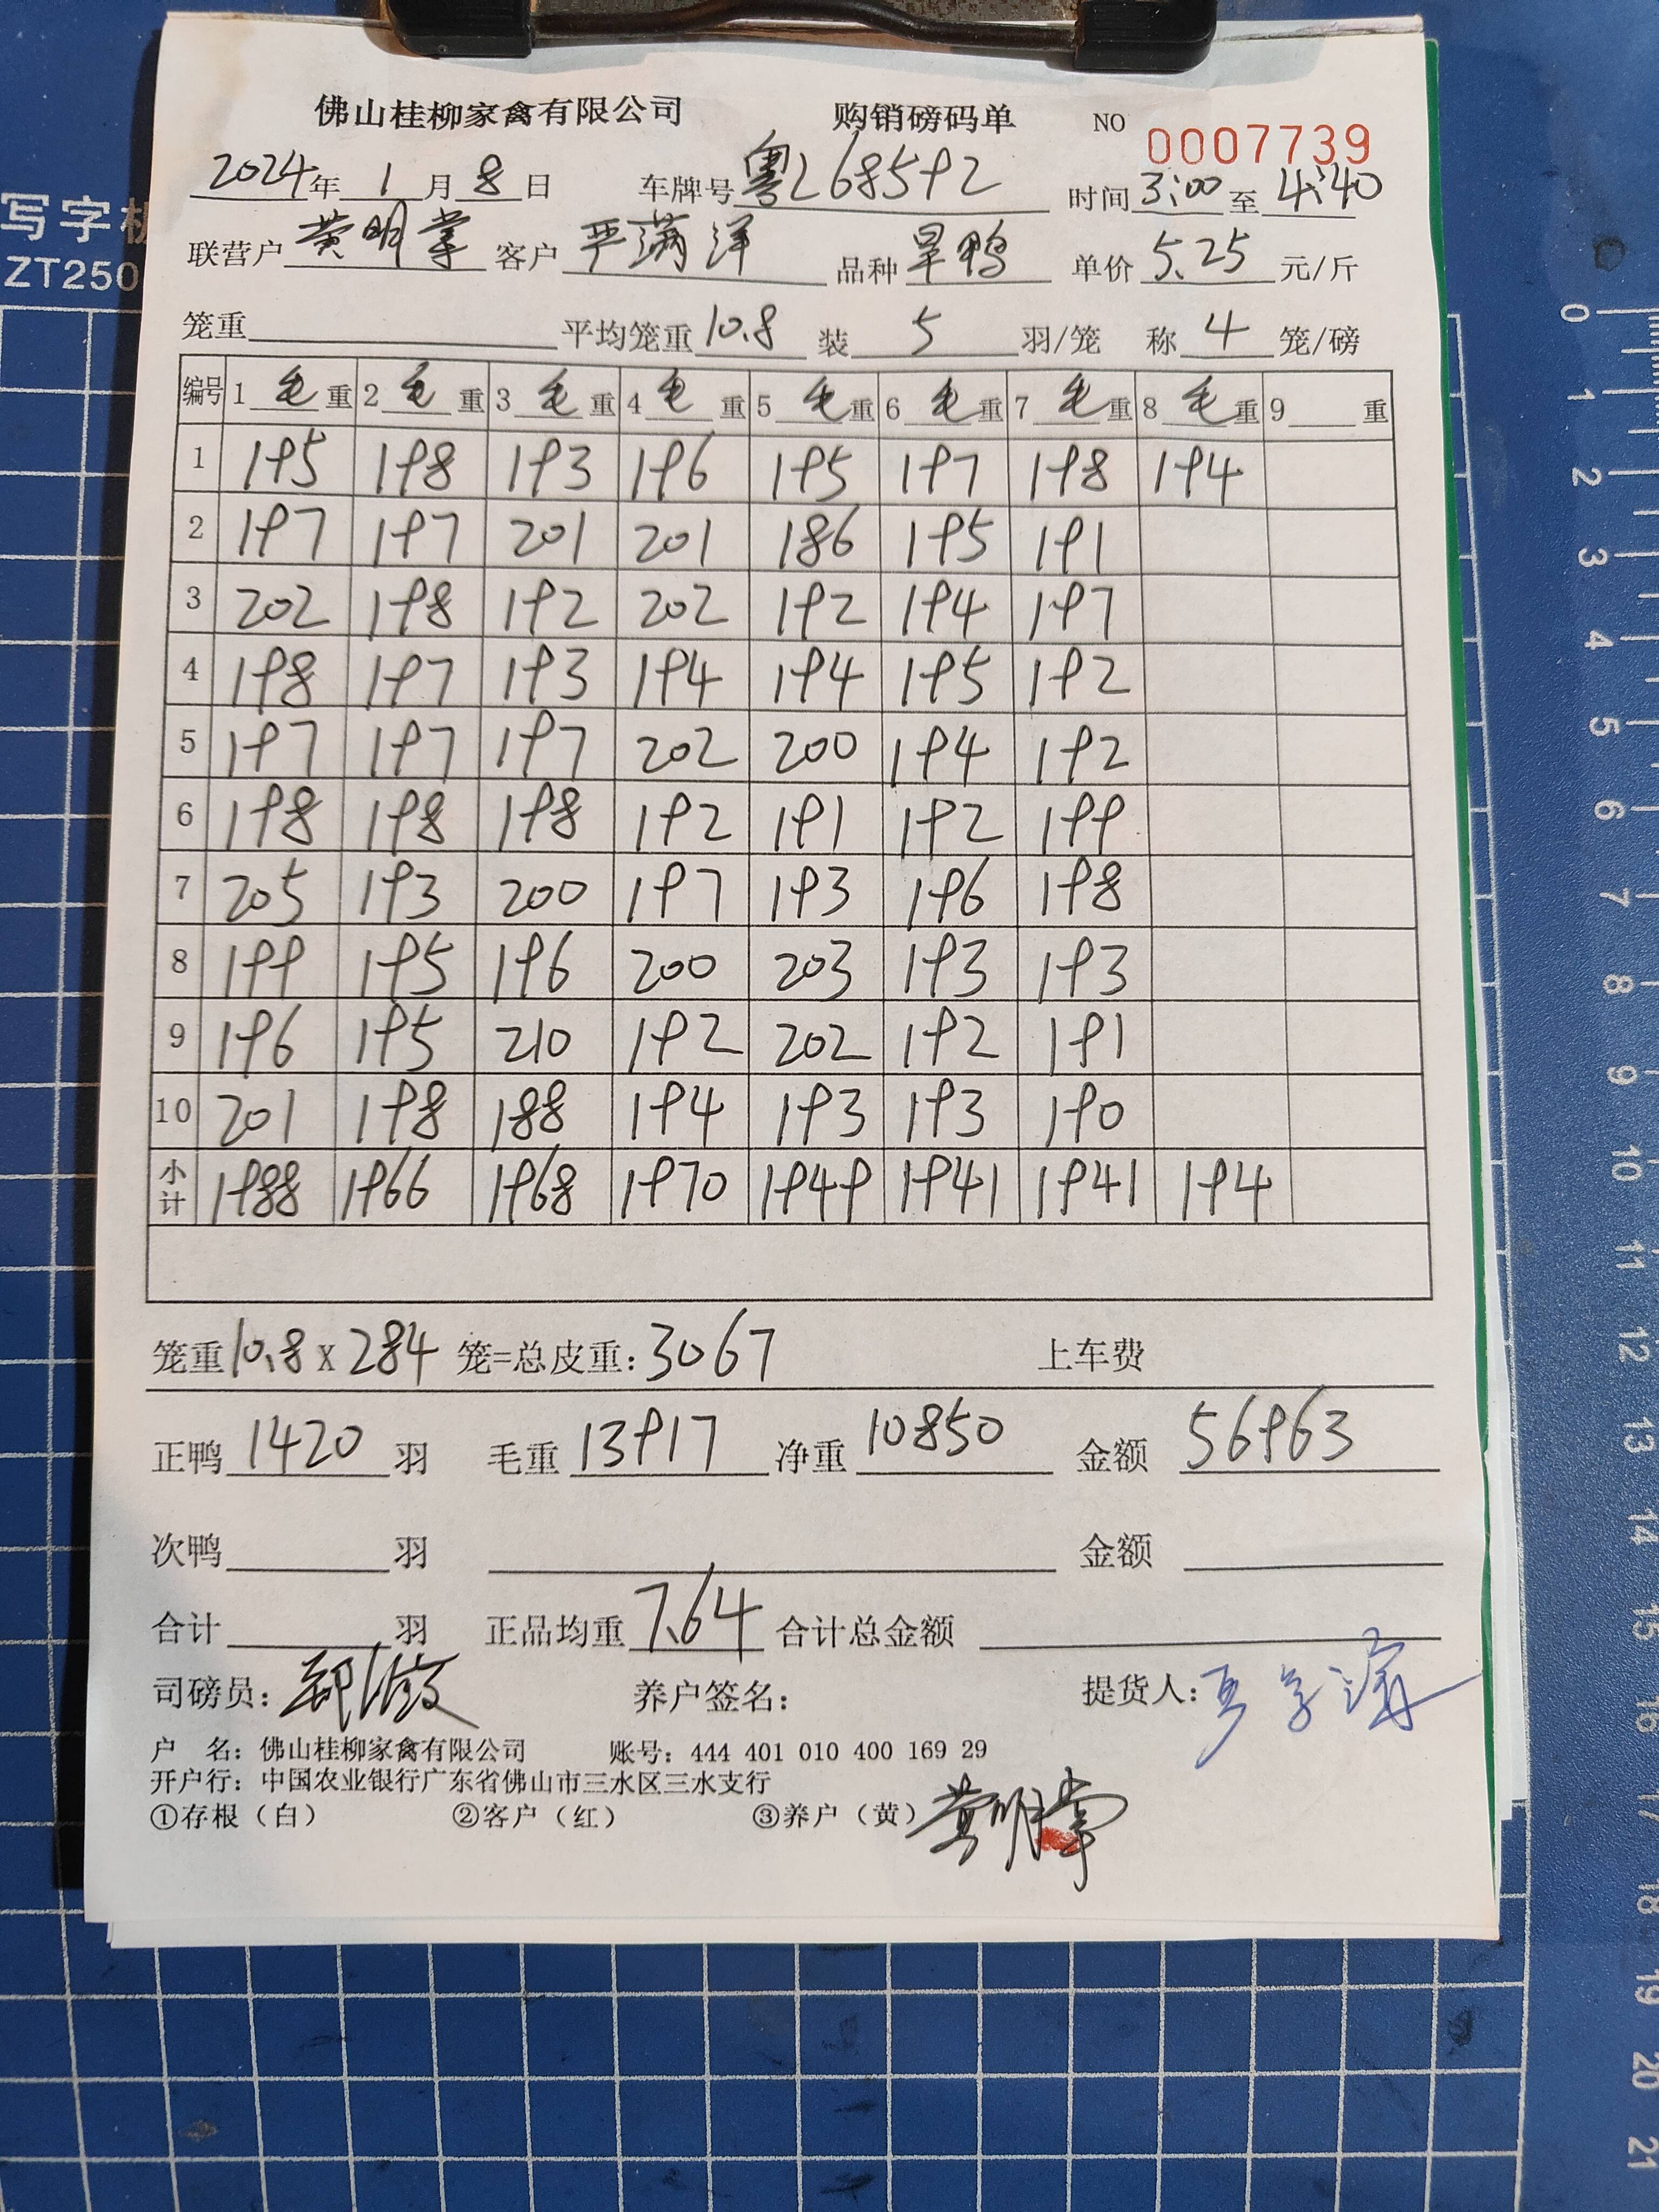 佛山桂柳家禽有限公司 购销磅码单 NO 0007739
2024年 1月 8日 车牌号粤L68592 时间3:00至4:40
联营户黄明掌 客户严满洋 品种旱鸭 单价5.25元/斤
笼重 平均笼重10.8 装5羽/笼 称4笼/磅
编号 1毛重 2毛重 3毛重 4毛重 5毛重 6毛重 7毛重 8毛重 9重
1 195 198 193 196 195 197 198 194
2 197 197 201 201 186 195 191
3 202 198 192 202 192 194 197
4 198 197 193 194 194 195 192
5 197 197 197 202 200 194 192
6 198 198 198 192 191 192 199
7 205 193 200 197 193 196 198
8 199 195 196 200 203 193 193
9 196 195 210 192 202 192 191
10 201 198 188 194 193 193 190
小计 1988 1966 1968 1970 1949 1941 1941 194
笼重10.8x284笼=总皮重:3067 上车费
正鸭1420羽 毛重13917 净重10850 金额56963
次鸭 羽 金额
合计 羽 正品均重7.64 合计总金额
司磅员: 养户签名: 提货人:
户 名: 佛山桂柳家禽有限公司 账号: 444 401 010 400 169 29
开户行: 中国农业银行广东省佛山市三水区三水支行
①存根（白） ②客户（红） ③养户（黄） 黄明掌
写字板
ZT250
0
1
2
3
4
5
6
7
8
9
10
11
12
13
14
15
16
17
18
19
20
21